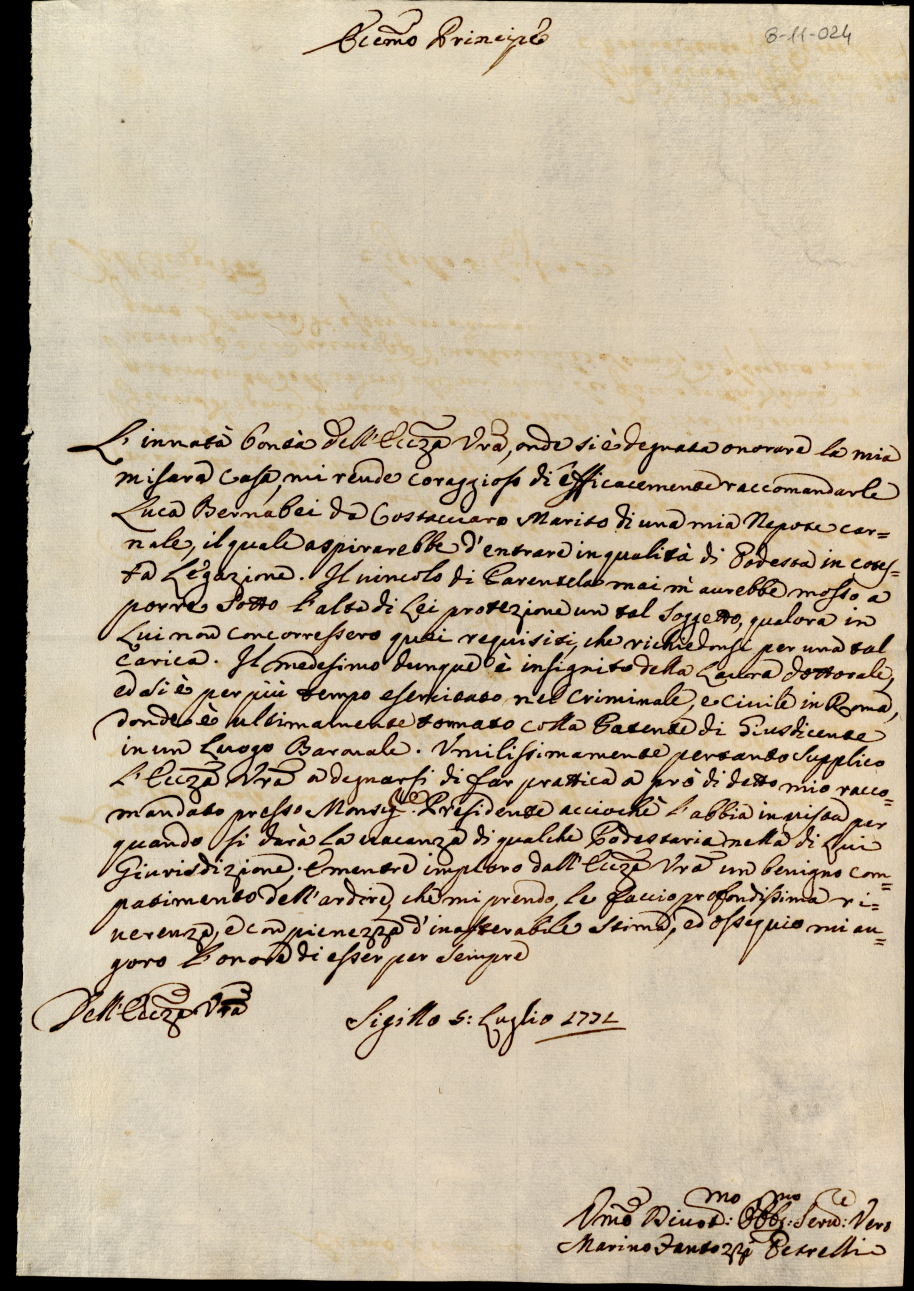 Eccmo Principe
6-11-024
L'innata bontà dell'Eccza Vrã, onde si è degnata onorare la mia
misara Casa, mi rende coraggioso di efficacemente raccomandarle
Luca Bernabei da Costacciaro Marito di una mia Nepote car=
nale, il quale aspirarebbe d'entrare in qualità di Podestà in cotes=
ta Legazione. Il vincolo di Parentela mai m'aurebbe mosso a
porre sotto l'alta di Lei protezione un tal Soggetto, qualora in
Lui non concorressero quei requisiti, che richiedonsi per una tal
Carica. Il medesimo dunque è insignito della Laurea dottorale,
ed si è per più tempo esercitato nel Criminale, e Civile in Roma,
donde è ultimamente tornato colla Patente di Giusdicente
in un Luogo Baronale. Umilissimamente pertanto Supplico
l'Eccza Vrã a degnarsi di far prattica a prò di detto mio racco=
mandato presso Monsigre Presidente acciochè l'abbia in vista per
quando si darà la vacanza di qualche Podestaria nella di Lui
Giurisdizione. E mentre imploro dall'Eccza Vrã un benigno com=
patimento dell'ardire, che mi prendo, le faccio profondissima ri=
uerenza, e con pienezza d'inalterabile stima, ed ossequio mi au=
guro l'onore di esser per sempre
Dell'Eccza Vrã
Sigillo 5: Luglio 1771
Vmo Diuot:mo Obb:mo Seru:e Vero
Marino Fantozzi Petrelli